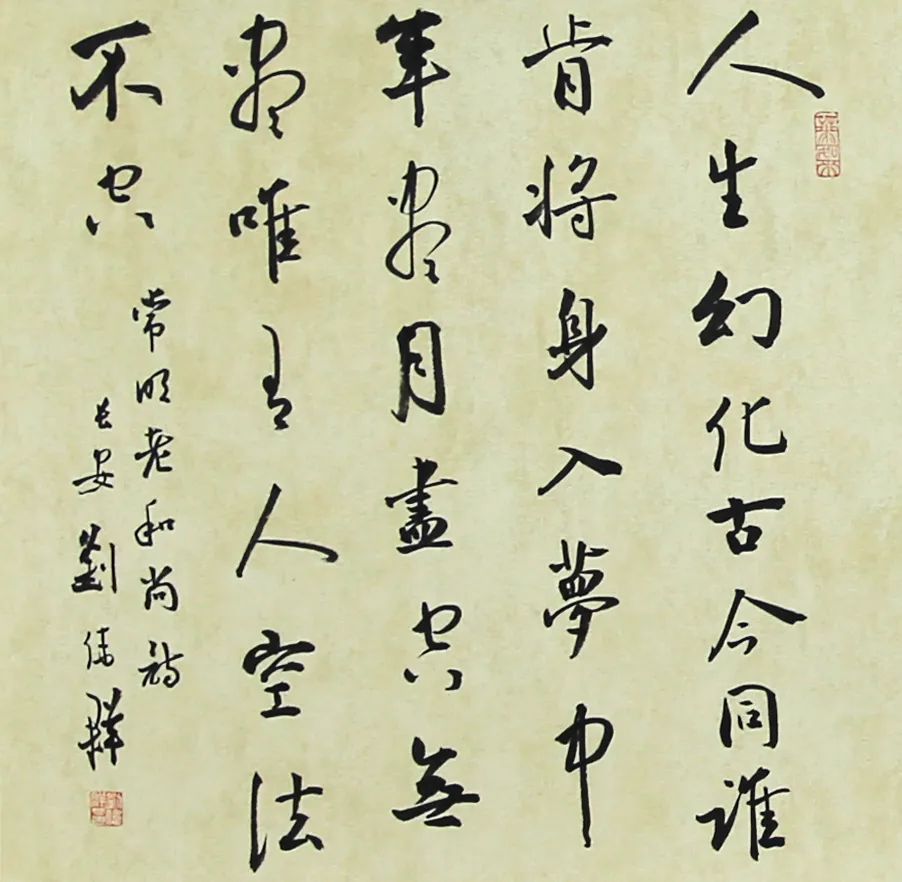 人生幻化古今同誰
肯將身入夢中
年盡月盡空無
盡唯有人空法
不空
常明老和尚詩
長安劉偉